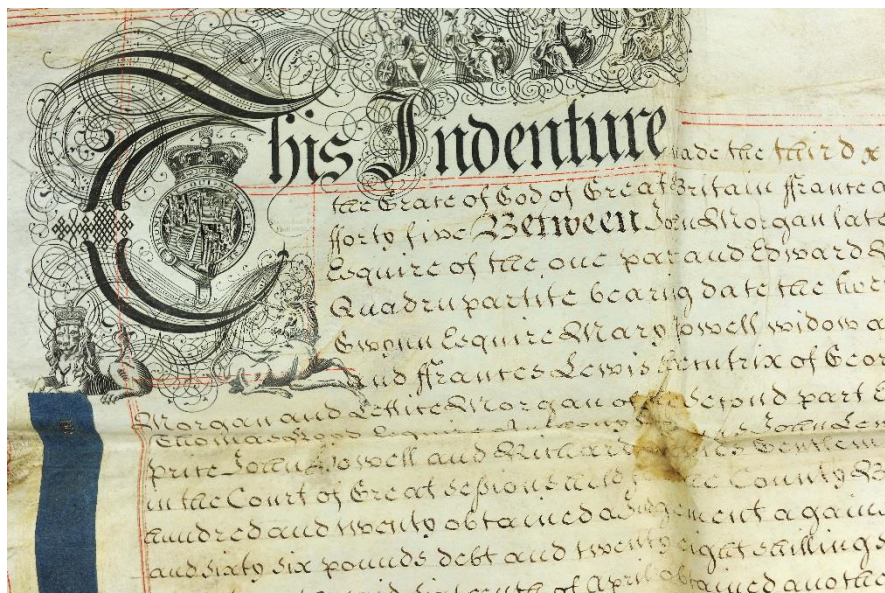 This Indenture made the third
the Grace of God of Great Britain ffrance a
fforty five Between John Morgan late
Esquire of the one part and Edward
Quadrupartite bearing date the
Gwynn Esquire Mary Powell widow a
and ffrances Lewis Executrix of Geor
Morgan and Lettice Morgan of the Second part E
Thomas Esquire John Lew
price John Powell and Richard Gentlem
in the Court of Great Sessions held for the County
hundred and twenty obtained a Judgement again
and Sixty Six pounds debt and twenty eight Shillings
said Sixteenth of April obtained anothe